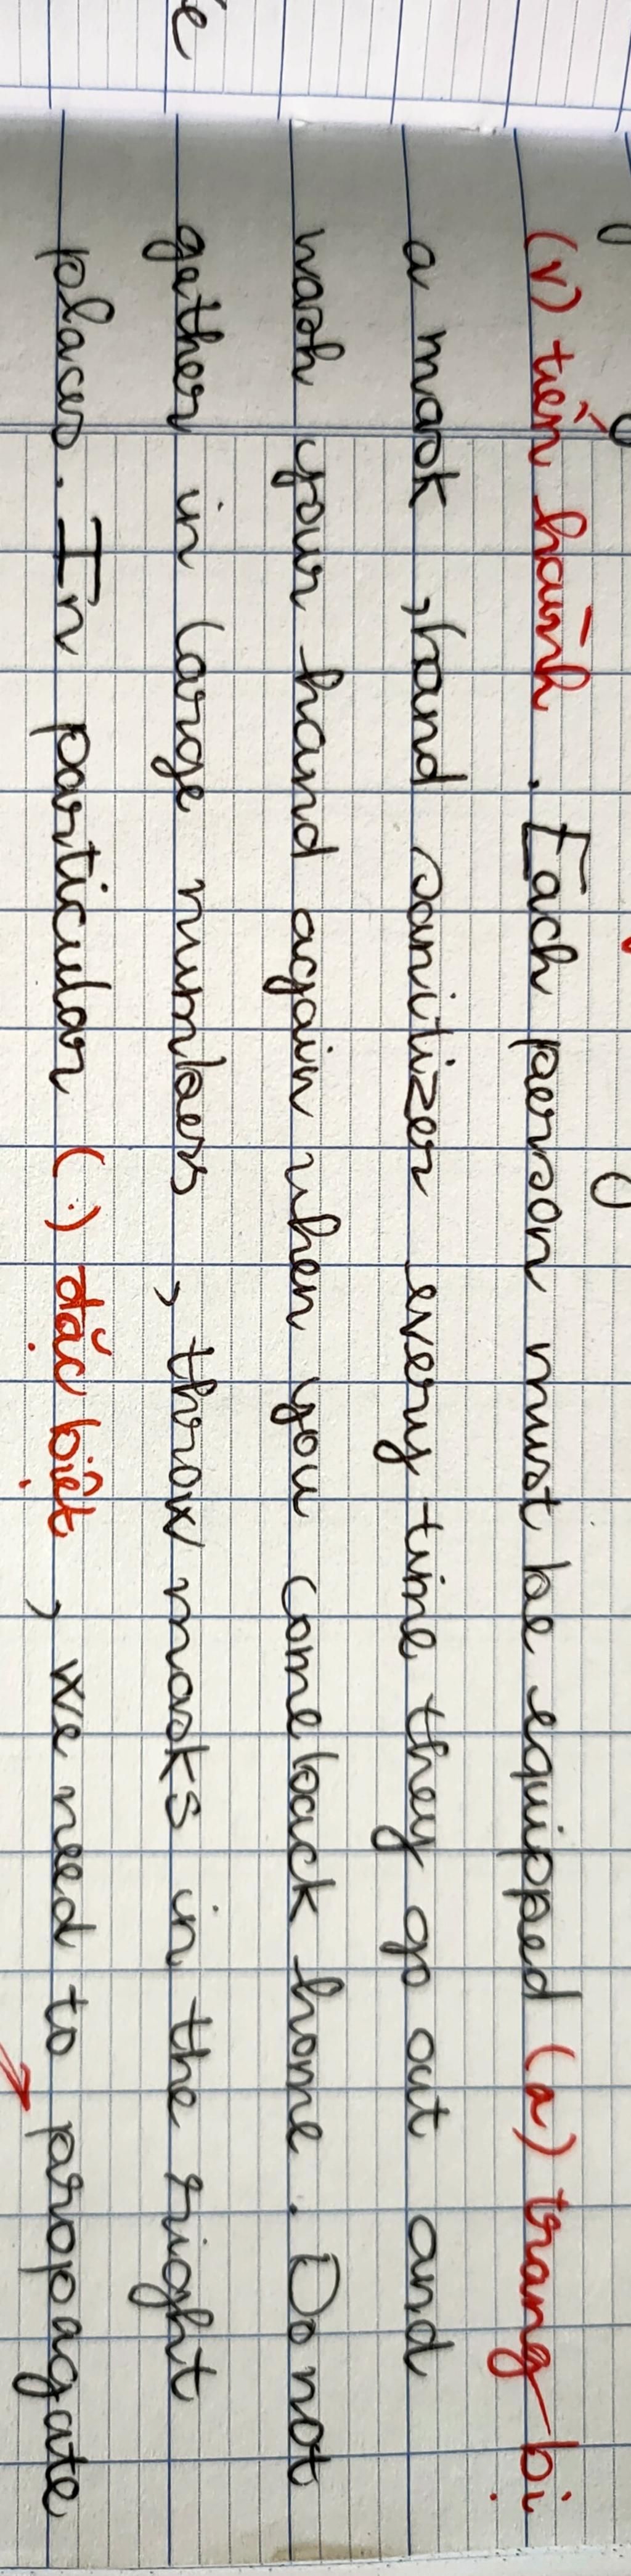 (v) tiến hành . Each person must be equipped (a) trang bị
a mask , hand sanitizer every time they go out and
wash your hand again when you come back home . Do not
gether in large numbers , throw masks in the right
places . In particular (.) đặc biệt , we need to propagate